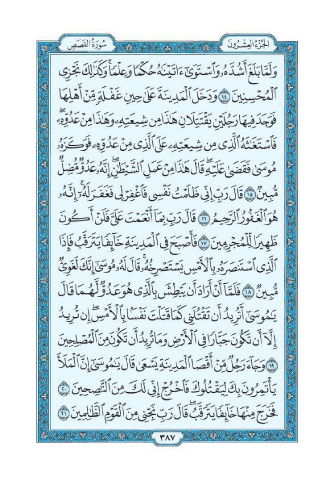 الجزء العشرون
سورة القصص
ولما بلغ أشده واستوى ءاتينه حكما وعلما وكذلك نجزي
المحسنين ١٤ ودخل المدينة على حين غفلة من أهلها
فوجد فيها رجلين يقتتلان هذا من شيعته وهذا من عدوه
فاستغثه الذي من شيعته على الذي من عدوه فوكزه
موسى فقضى عليه قال هذا من عمل الشيطن إنه عدو مضل
مبين ١٥ قال رب إني ظلمت نفسي فاغفر لي فغفر له إنه
هو الغفور الرحيم ١٦ قال رب بما أنعمت علي فلن أكون
ظهيرا للمجرمين ١٧ فأصبح في المدينة خايفا يترقب فإذا
الذي استنصره بالأمس يستصرخه قال له موسى إنك لغوي
مبين ١٨ فلما أن أراد أن يبطش بالذي هو عدو لهما قال
يموسى أتريد أن تقتلني كما قتلت نفسا بالأمس إن تريد
إلا أن تكون جبارا في الأرض وما تريد أن تكون من المصلحين
١٩ وجاء رجل من أقصا المدينة يسعى قال يموسى إن الملأ
يأتمرون بك ليقتلوك فاخرج إني لك من النصحين ٢٠
فخرج منها خايفا يترقب قال رب نجني من القوم الظلمين ٢١
٣٨٧